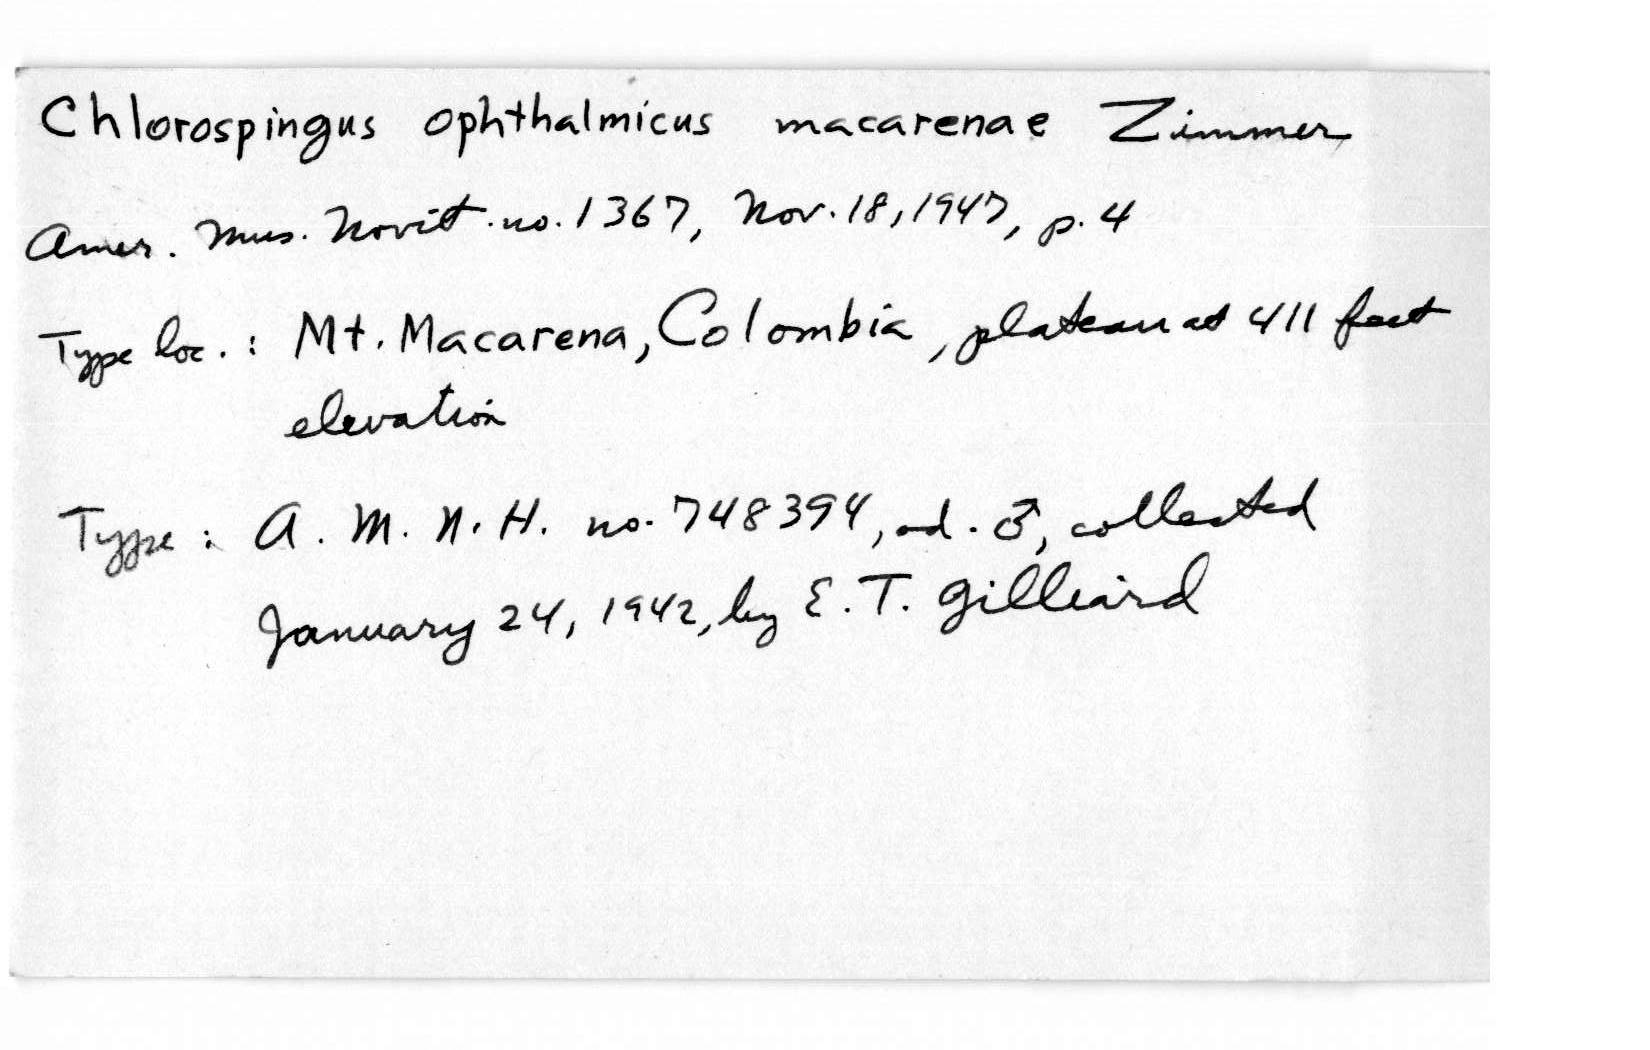 Chlorospingus ophthalmicus macarenae Zimmer
Amer. Mus. Novit. no. 1367, Nov. 18, 1947, p. 4
Type loc. : Mt. Macarena, Colombia, plateau at 411 feet
elevation
Type : A. M. N. H. no. 748394, ad. ♂, collected
January 24, 1942, by E. T. Gilliard